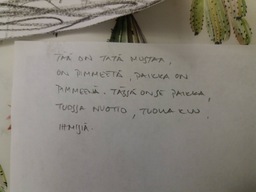 TÄÄ ON TÄTÄ MUSTAA,
ON PIMMETTÄ, PAIKKA ON
PIMMEENÄ. TÄSSÄ ON SE PAIKKA,
TUOSSA NUOTIO, TUOLLA KUU
IHMISIÄ.